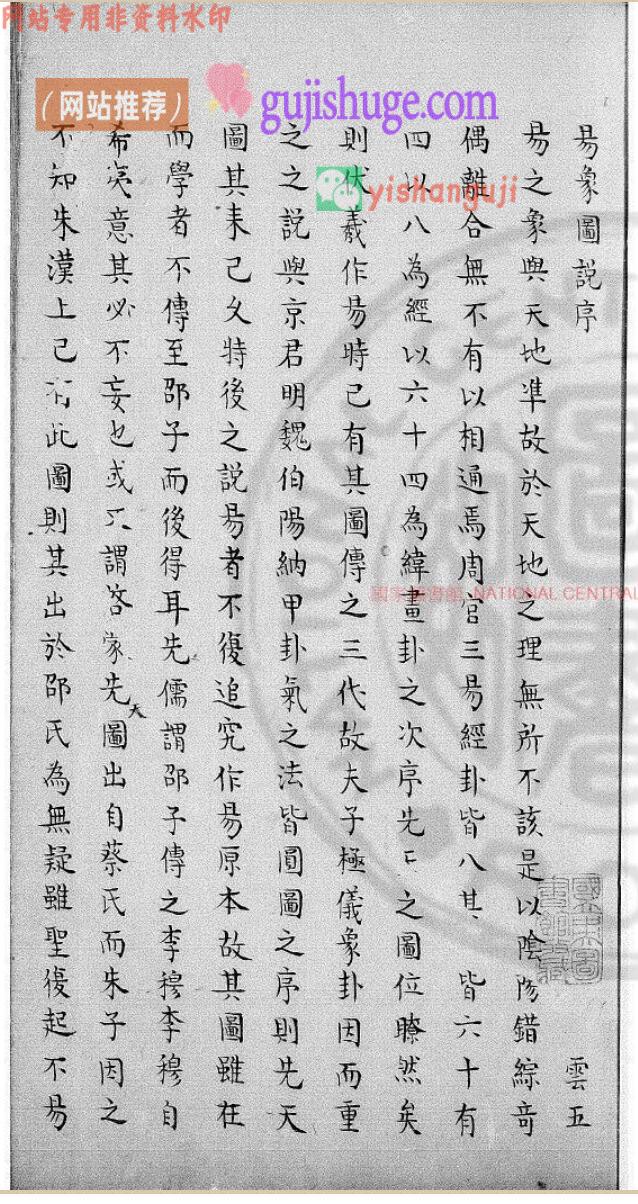 网站专用非资料水印
（网站推荐）
gujishuge.com
yishanguji
國家圖書館 NATIONAL CENTRAL
易象圖説序
雲五
易之象與天地準故於天地之理無所不該是以陰陽錯綜竒
偶離合無不有以相通焉周官三易經卦皆八其 皆六十有
四以八為經以六十四為緯畫卦之次序先 之圖位瞭然矣
則伏羲作易時已有其圖傳之三代故夫子極儀象卦因而重
之之説與京君明魏伯陽納甲卦氣之法皆圓圖之序則先天
圖其来已久特後之説易者不復追究作易原本故其圖雖在
而學者不傳至邵子而後得耳先儒謂邵子傳之李穆李穆自
希夷意其必不妄也或 謂 家先天圖出自蔡氏而朱子因之
不知朱漢上已有此圖則其出於邵氏為無疑雖聖復起不易